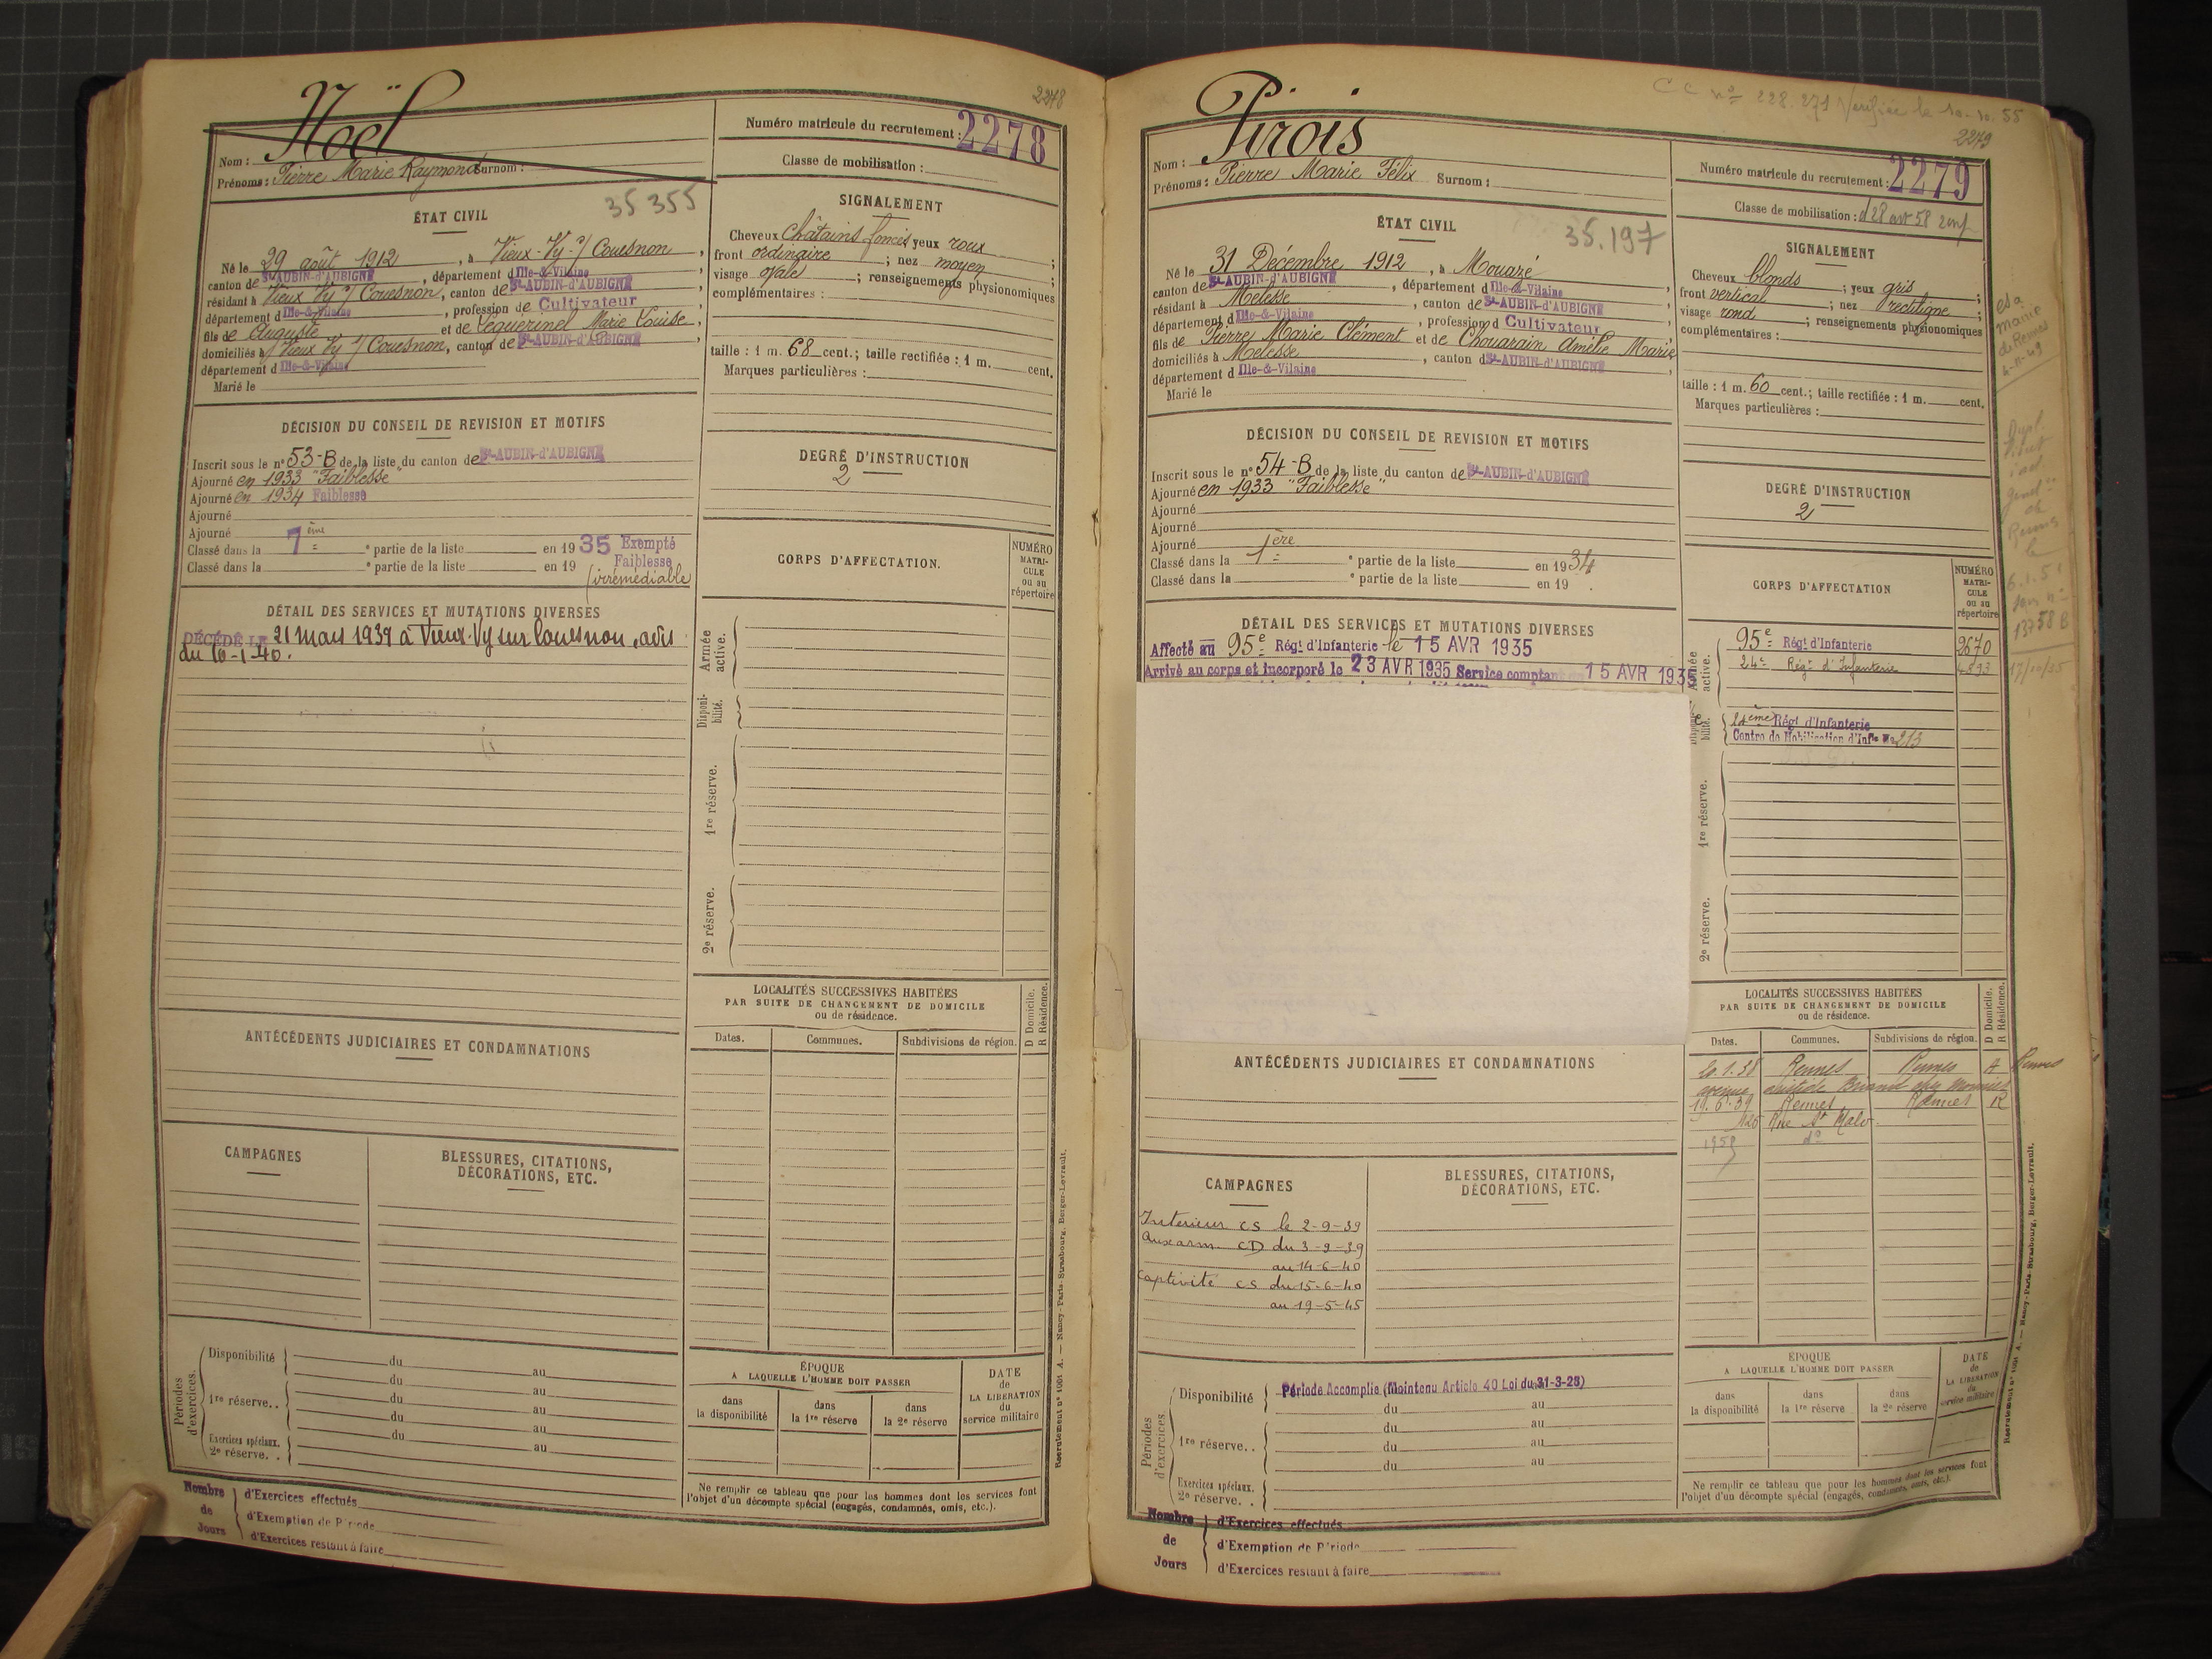 2278
Noël
Nom :
Prénoms : Pierre Marie Raymond Surnom :
Numéro matricule du recrutement : 2278
Classe de mobilisation :
35 355
ÉTAT CIVIL
Né le 29 août 1912, à Vieux-Vy-s/ Couesnon,
canton de St-AUBIN-d'AUBIGNÉ, département d Ille-&-Vilaine,
résidant à Vieux Vy s/ Couesnon, canton de St-AUBIN-d'AUBIGNÉ
département d Ille-&-Vilaine, profession de Cultivateur
fils de Auguste et de Leguerinel Marie Louise,
domiciliés à Vieux Vy s/ Couesnon, canton de St-AUBIN-d'AUBIGNÉ
département d Ille-&-Vilaine
Marié le
SIGNALEMENT
Cheveux châtains foncés yeux roux ;
front ordinaire ; nez moyen ;
visage ovale ; renseignements physionomiques
complémentaires :
taille : 1 m. 68 cent.; taille rectifiée : 1 m. cent.
Marques particulières :
DÉCISION DU CONSEIL DE REVISION ET MOTIFS
Inscrit sous le n° 53-B de la liste du canton de St-AUBIN-d'AUBIGNÉ
Ajourné en 1933 "Faiblesse"
Ajourné en 1934 Faiblesse
Ajourné
Ajourné
Classé dans la 7ème e partie de la liste en 1935 Exempté
Faiblesse
Classé dans la e partie de la liste en 19 (irrémédiable
DEGRÉ D'INSTRUCTION
2
CORPS D'AFFECTATION.
NUMÉRO
MATRI-
CULE
ou au
répertoire
DÉTAIL DES SERVICES ET MUTATIONS DIVERSES
DÉCÉDÉ LE 21 mars 1939 à Vieux-Vy sur Couesnon, avis
du 16-1-40.
Armée active.
Disponibilité.
1re réserve.
2e réserve.
LOCALITÉS SUCCESSIVES HABITÉES
PAR SUITE DE CHANGEMENT DE DOMICILE
ou de résidence.
D Domicile.
R Résidence.
Dates.
Communes.
Subdivisions de région.
ANTÉCÉDENTS JUDICIAIRES ET CONDAMNATIONS
CAMPAGNES
BLESSURES, CITATIONS,
DÉCORATIONS, ETC.
Périodes d'exercices.
Disponibilité du au
du au
1re réserve.. du au
du au
Exercices spéciaux. du au
2e réserve. .
ÉPOQUE
A LAQUELLE L'HOMME DOIT PASSER
dans la disponibilité
dans la 1re réserve
dans la 2e réserve
DATE
de
LA LIBERATION
du
service militaire
Ne remplir ce tableau que pour les hommes dont les services font
l'objet d'un décompte spécial (engagés, condamnés, omis, etc.).
Nombre de Jours
d'Exercices effectués
d'Exemption de Période
d'Exercices restant à faire
Recrutement n° 1061 A. — Nancy-Paris-Strasbourg, Berger-Levrault.
C C n° 228.271 Vérifiée le 10-10.55
2279
Pirois
Nom :
Prénoms : Pierre Marie Félix Surnom :
Numéro matricule du recrutement : 2279
Classe de mobilisation :
35.197
ÉTAT CIVIL
Né le 31 Décembre 1912, à Mouazé
canton de St-AUBIN-d'AUBIGNÉ, département d Ille-&-Vilaine
résidant à Melesse, canton de St-AUBIN-d'AUBIGNÉ
département d Ille-&-Vilaine, profession d Cultivateur
fils de Pierre Marie Clément et de Chouarain Amélie Marie
domiciliés à Melesse, canton d St-AUBIN-d'AUBIGNÉ
département d Ille-&-Vilaine
Marié le
SIGNALEMENT
Cheveux blonds ; yeux gris ;
front vertical ; nez rectiligne ;
visage rond ; renseignements physionomiques
complémentaires :
taille : 1 m. 60 cent.; taille rectifiée : 1 m. cent.
Marques particulières :
DÉCISION DU CONSEIL DE REVISION ET MOTIFS
Inscrit sous le n° 54-B de la liste du canton de St-AUBIN-d'AUBIGNÉ
Ajourné en 1933 "Faiblesse"
Ajourné
Ajourné
Ajourné
Classé dans la 1ère e partie de la liste en 1934
Classé dans la e partie de la liste en 19
DEGRÉ D'INSTRUCTION
2
CORPS D'AFFECTATION
NUMÉRO
MATRI-
CULE
ou au
répertoire
DÉTAIL DES SERVICES ET MUTATIONS DIVERSES
Affecté au 95e Régt d'Infanterie le 15 AVR 1935
Arrivé au corps et incorporé le 23 AVR 1935 Service comptant 15 AVR 1935
Armée active.
95e Régt d'Infanterie 2670
24e Régt d'Infanterie
24ème Régt d'Infanterie
Centre de Mobilisation d'Infie No 213
1re réserve.
2e réserve.
LOCALITÉS SUCCESSIVES HABITÉES
PAR SUITE DE CHANGEMENT DE DOMICILE
ou de résidence.
D Domicile.
R Résidence.
Dates.
Communes.
Subdivisions de région.
Rennes Rennes
avenue Aristide Briand chez Monnier
19.6.39 Rennes Rennes R
Rue St Malo
1958 d°
ANTÉCÉDENTS JUDICIAIRES ET CONDAMNATIONS
CAMPAGNES
Intérieur CS le 2-9-39
Aux arm. CD du 3-9-39
au 14-6-40
Captivité CS du 15-6-40
au 19-5-45
BLESSURES, CITATIONS,
DÉCORATIONS, ETC.
Périodes d'exercices.
Disponibilité Période Accomplie (Maintenu Article 40 Loi du 31-3-28)
du au
du au
1re réserve.. du au
du au
Exercices spéciaux.
2e réserve. .
ÉPOQUE
A LAQUELLE L'HOMME DOIT PASSER
dans la disponibilité
dans la 1re réserve
dans la 2e réserve
DATE
de
LA LIBERATION
du
service militaire
Ne remplir ce tableau que pour les hommes dont les services font
l'objet d'un décompte spécial (engagés, condamnés, omis, etc.).
Nombre de Jours
d'Exercices effectués
d'Exemption de Période
d'Exercices restant à faire
Recrutement n° 1061 A. — Nancy-Paris-Strasbourg, Berger-Levrault.